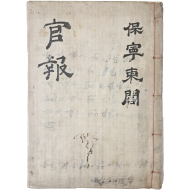 保寧東閣
官報